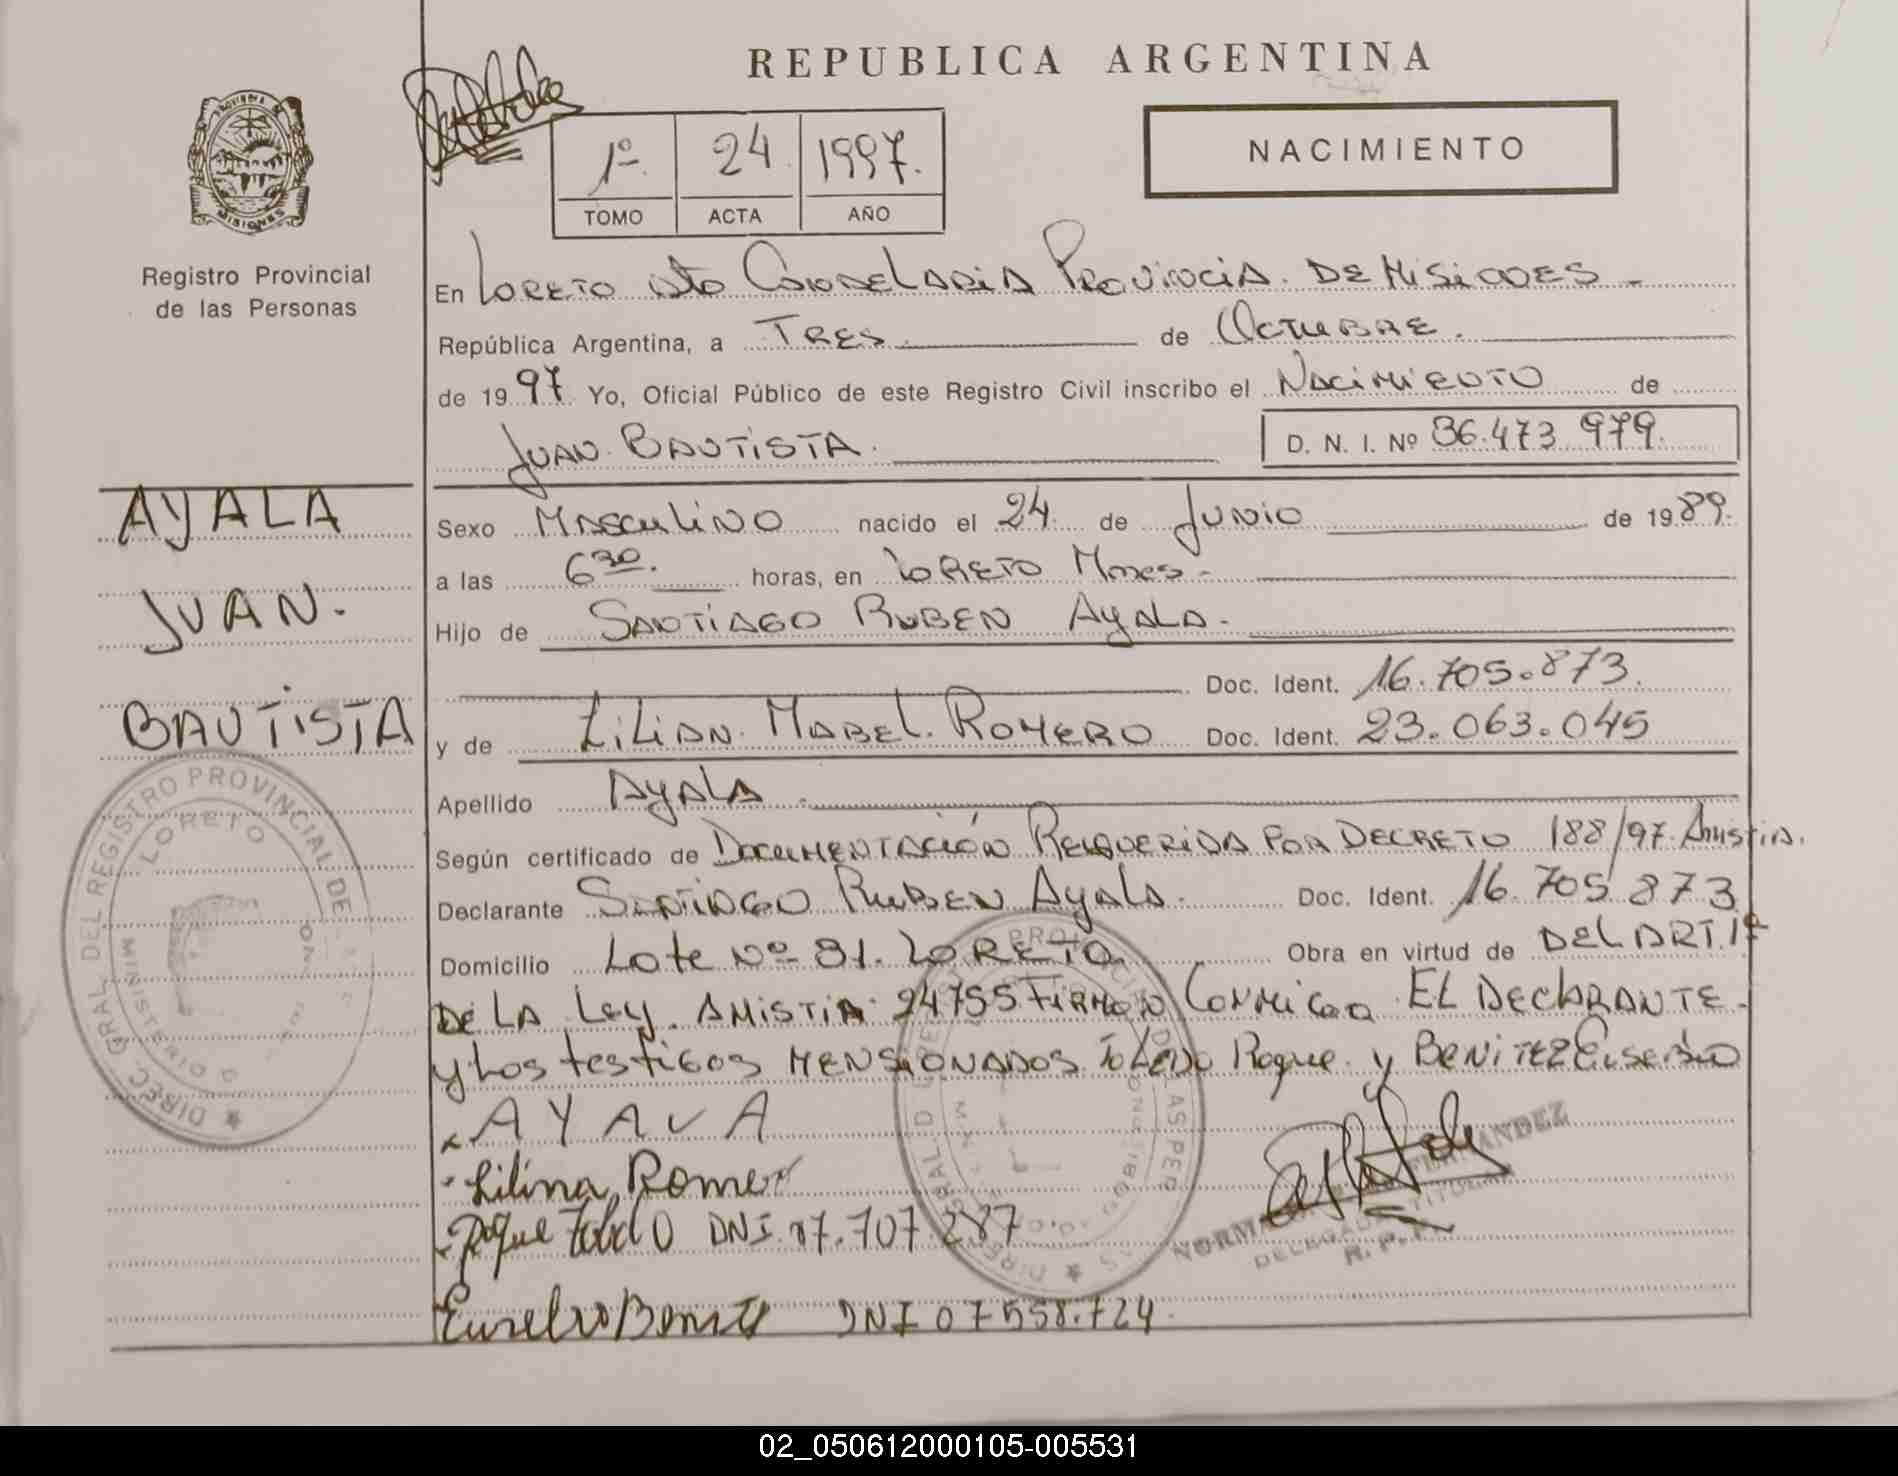 REPUBLICA ARGENTINA
PROVINCIA DE
MISIONES
Registro Provincial
de las Personas
1º. 24. 1997.
TOMO ACTA AÑO
NACIMIENTO
En LORETO Dto CANDELARIA PROVINCIA DE MISIONES -
República Argentina, a TRES. de OCTUBRE.
de 1997 Yo, Oficial Público de este Registro Civil inscribo el NACIMIENTO de
JUAN BAUTISTA.
D. N. I. Nº 36.473 979.
AYALA
JUAN.
BAUTISTA
Sexo MASCULINO nacido el 24 de JUNIO de 1989.
a las 6 30. horas, en LORETO Mnes -
Hijo de SANTIAGO RUBEN AYALA -
Doc. Ident. 16.705.873.
y de LILIAN MABEL ROMERO Doc. Ident. 23.063.045
Apellido AYALA.
Según certificado de DOCUMENTACIÓN REQUERIDA POR DECRETO 188/97 Amistia.
Declarante SANTIAGO RUBEN AYALA. Doc. Ident. 16.705 873
Domicilio Lote Nº 31. LORETO. Obra en virtud de DEL ART. 1º
DE LA LEY. AMISTIA 24755 FIRMAN CONMIGO EL DECLARANTE -
y Los testigos MENSIONADOS TOLEDO Roque y BENITEZ Eusebio
AYAVA
Lilina Romer
Roque Toledo DNI 17.707.287
Eusebio Benitez DNI 07558.724.
DIREC. GRAL. DEL REGISTRO PROVINCIAL DE
LORETO
MINISTERIO
NORMA FERNANDEZ
DELEGADA TITULAR
R. P. P.
02_050612000105-005531